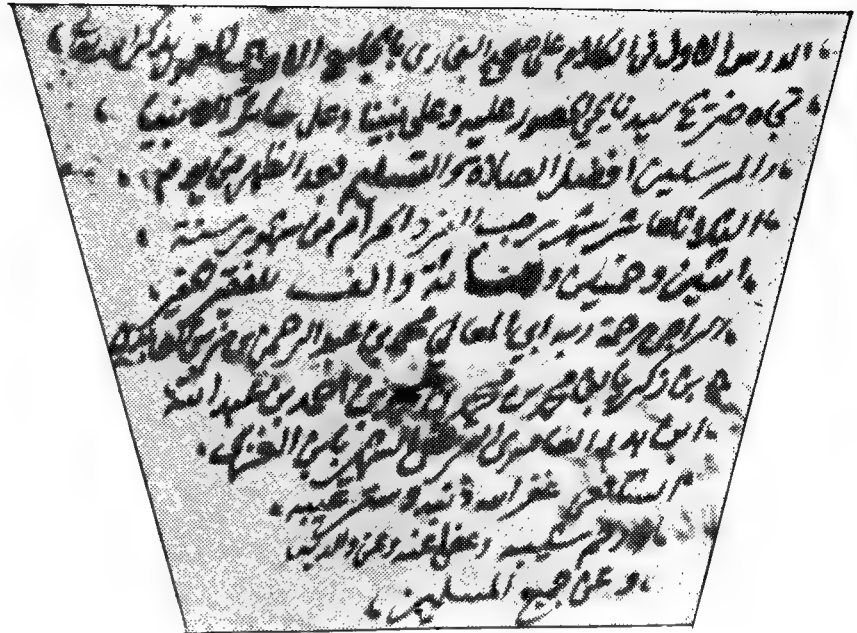 الدرس الاول في الكلام على صحيح البخاري بالجامع الاموي المعمور بذكر الله تعالى
تجاه ضريح سيدنا يحيى الحصور عليه وعلى نبينا وعلى سائر الانبيا
والمرسلين افضل الصلاة والتسليم بعد الظهر من يوم
الثلاثا عاشر شهر رجب الفرد الحرام من شهور سنة
اثنين وخمسين ومائة والف للفقير الحقير
راجي رحمة ربه ابي المعالي محمد بن عبد الرحمن بن زين العابدين
بن زكريا بن محمد بن محمد بن محمد بن احمد بن عبد الله
ابن العامري الشهير بابن الغزي
الشافعي غفر الله ذنبه وستر عيبه
وعفى عنه وعن والديه
وعن جميع المسلمين